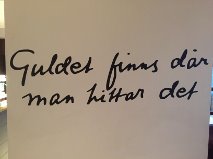 Guldet finns där
man hittar det